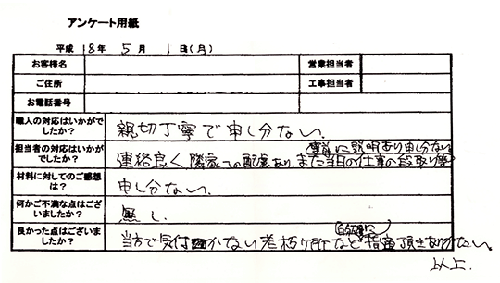 アンケート用紙
平成 18年 5月 1日(月)
お客様名
営業担当者
ご住所
工事担当者
お電話番号
職人の対応はいかがでしたか?
親切丁寧で申し分ない.
担当者の対応はいかがでしたか?
事前に説明あり申し分ない。
連絡良く、隣家への配慮あり また当日の仕事の段取り等
材料に対してのご感想は?
申し分ない.
何かご不満な点はございましたか?
無し.
良かった点はございましたか?
当方で気付かない老朽ヶ所など 指適頂きありがたい。
以上.